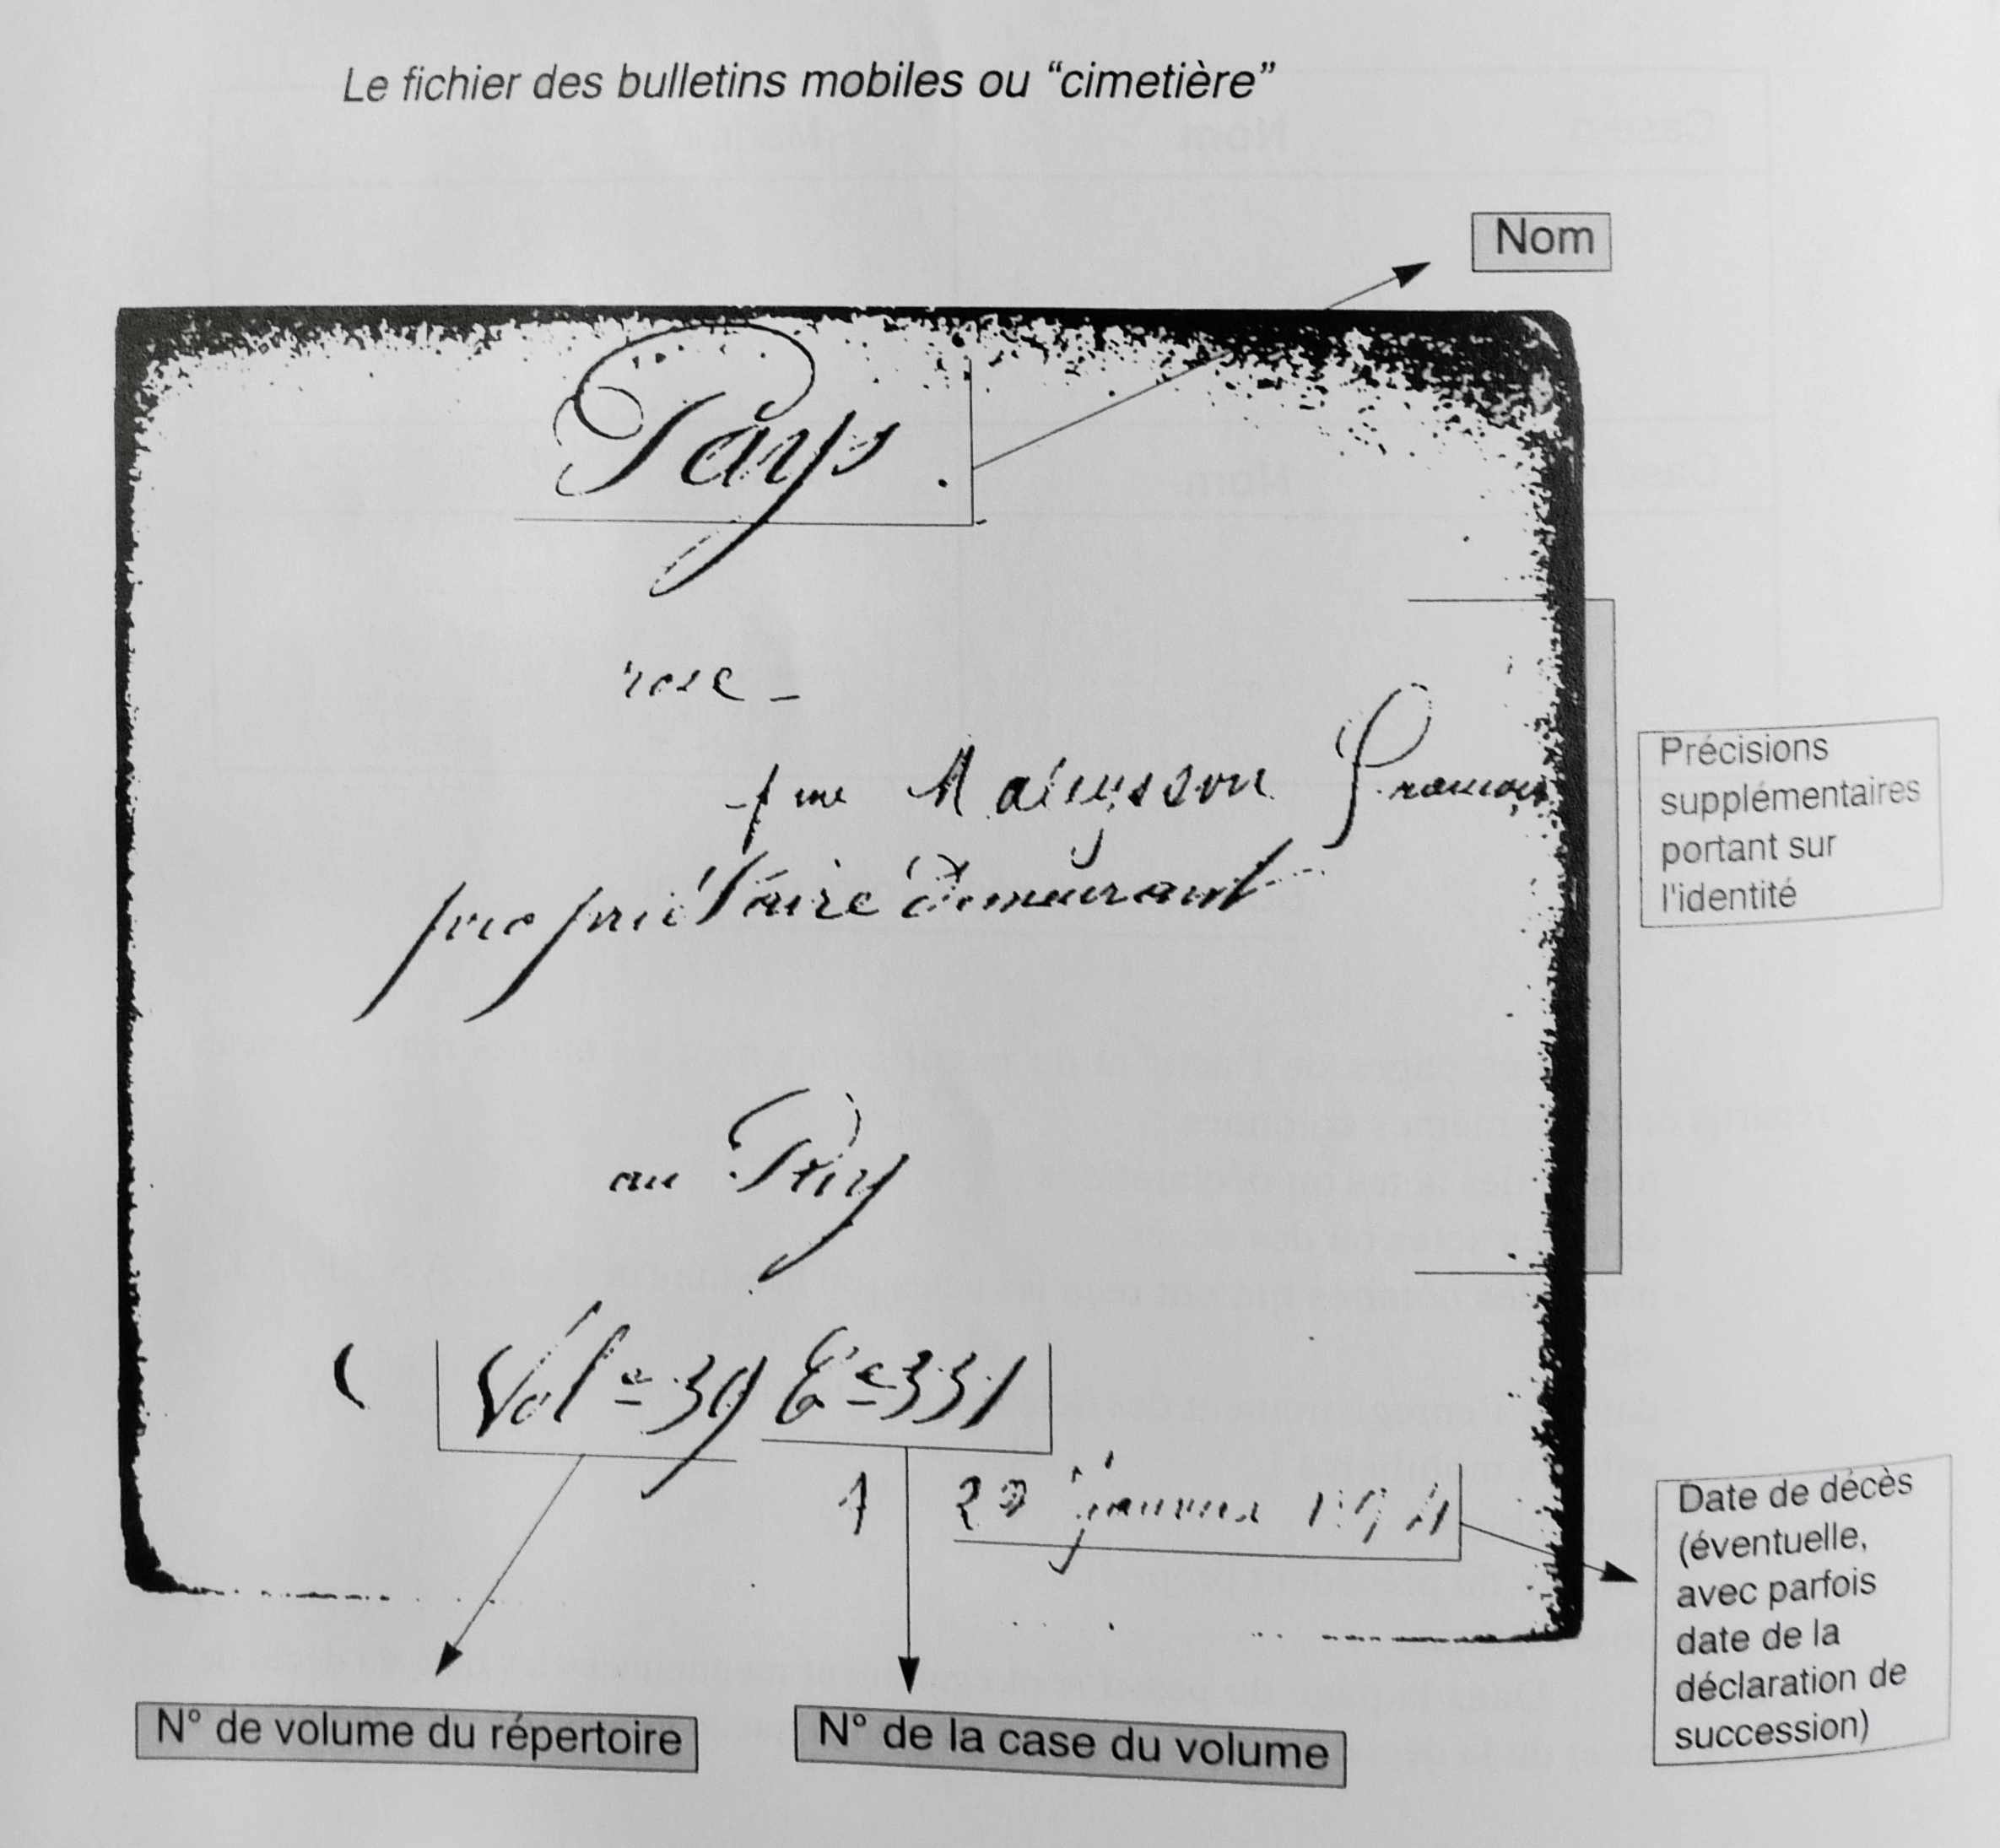 Le fichier des bulletins mobiles ou “cimetière”
Nom
Pays
rose -
fme
propriétaire demeurant
au Puy
Vol e 39 Ce 331
janvier
Précisions
supplémentaires
portant sur
l'identité
Date de décès
(éventuelle,
avec parfois
date de la
déclaration de
succession)
N° de volume du répertoire
N° de la case du volume